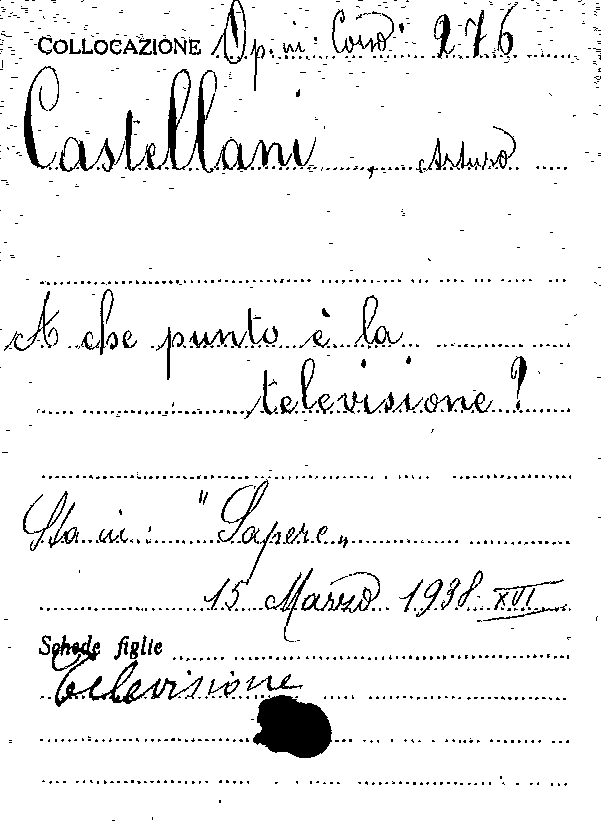 COLLOCAZIONE Op. in: Corso 276
Castellani, Arturo
A che punto è la
televisione?
Sta in: "Sapere"
15 Marzo 1938 XVI
Schede figlie
Televisione